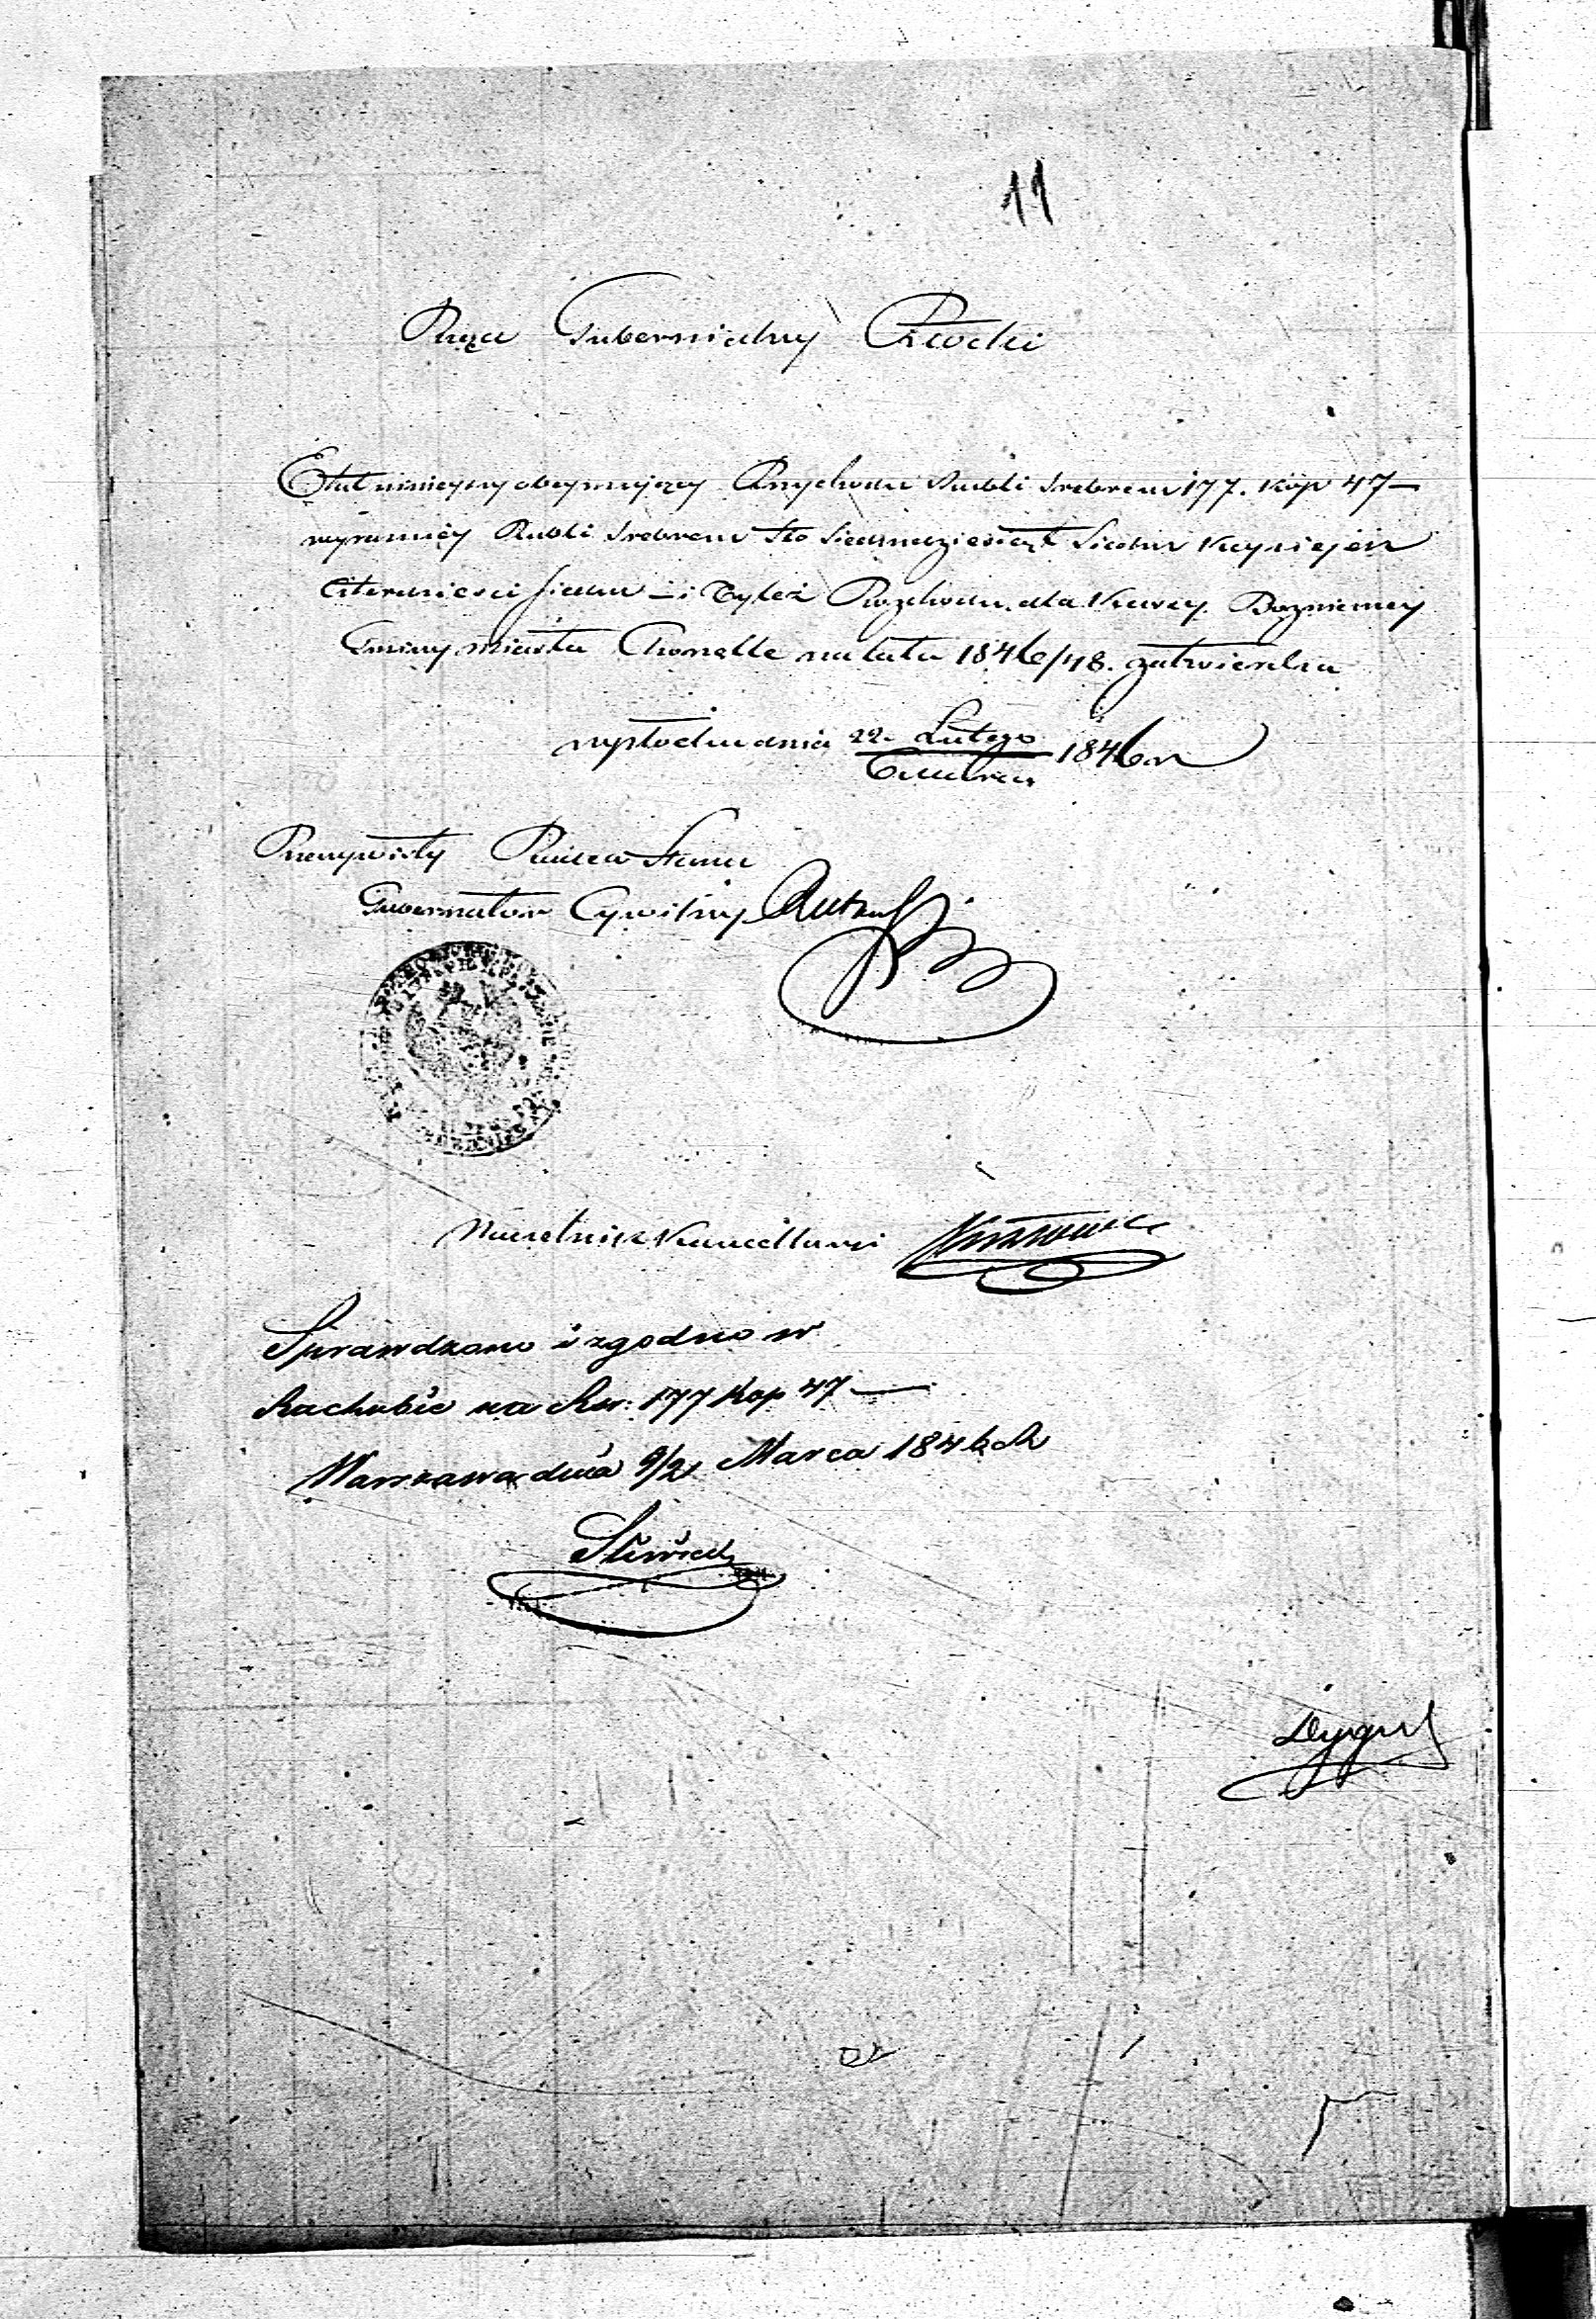 11
Rząd Gubernialny Płocki
Etat niniejszy obejmujący Przychodu Rubli Srebrem 177. kop 47 —
wyraźniej Rubli Srebrem Sto Siedmdziesiąt Siedm kopiejek
Czterdzieści siedm — i Tyleż Rozchodu, dla Kassy Bożniczej
Gminy miasta Chorzelle na lata 1846/48. zatwierdza
w Płocku dnia 22. Lutego 1846 r
Rzeczywisty Radca Stanu
Gubernator Cywilny
Naczelnik Kancellaryi
Sprawdzono i zgodno w
Rachubie na Rsr: 177 Kop 47 —
Warszawa dnia 9/21 Marca 1846 R